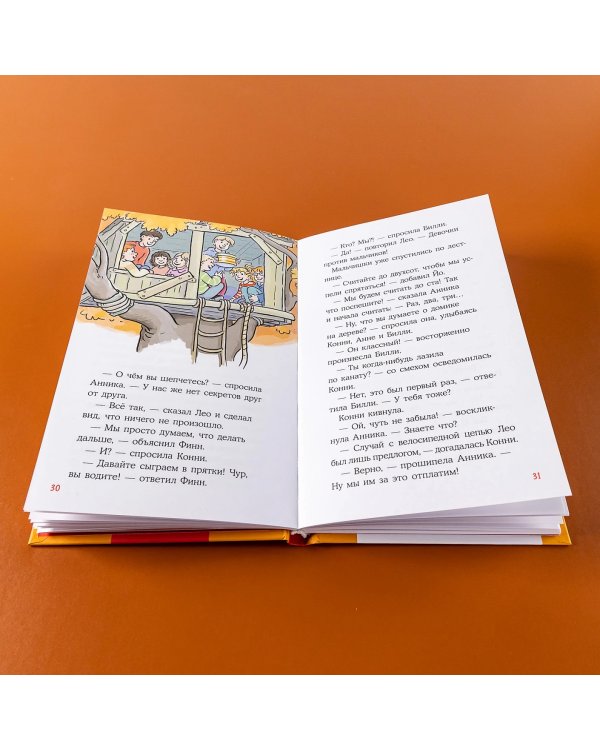 — О чём вы шепчетесь? — спросила
Анника. — У нас же нет секретов друг
от друга.
— Всё так, — сказал Лео и сделал
вид, что ничего не произошло.
— Мы просто думаем, что делать
дальше, — объяснил Финн.
— И? — спросила Конни.
— Давайте сыграем в прятки! Чур,
вы водите! — ответил Финн.
30
— Кто? Мы?! — спросила Билли.
— Да! — повторил Лео. — Девочки
против мальчиков!
Мальчишки уже спустились по лест-
нице.
— Считайте до двухсот, чтобы мы ус-
пели спрятаться! — добавил Йо.
— Мы будем считать до ста! Так
что поспешите! — сказала Анника
и начала считать: — Раз, два, три…
— Ну, что вы думаете о домике
на дереве? — спросила она, улыбаясь
Конни, Анне и Билли.
— Он классный! — восторженно
произнесла Билли.
— Ты когда-нибудь лазила
по канату? — со смехом осведомилась
Конни.
— Нет, это был первый раз, — отве-
тила Билли. — У тебя тоже?
Конни кивнула.
— Ой, чуть не забыла! — восклик-
нула Анника. — Знаете что?
— Случай с велосипедной цепью Лео
был лишь предлогом, — догадалась Конни.
— Верно, — прошипела Анника. —
Ну мы им за это отплатим!
31